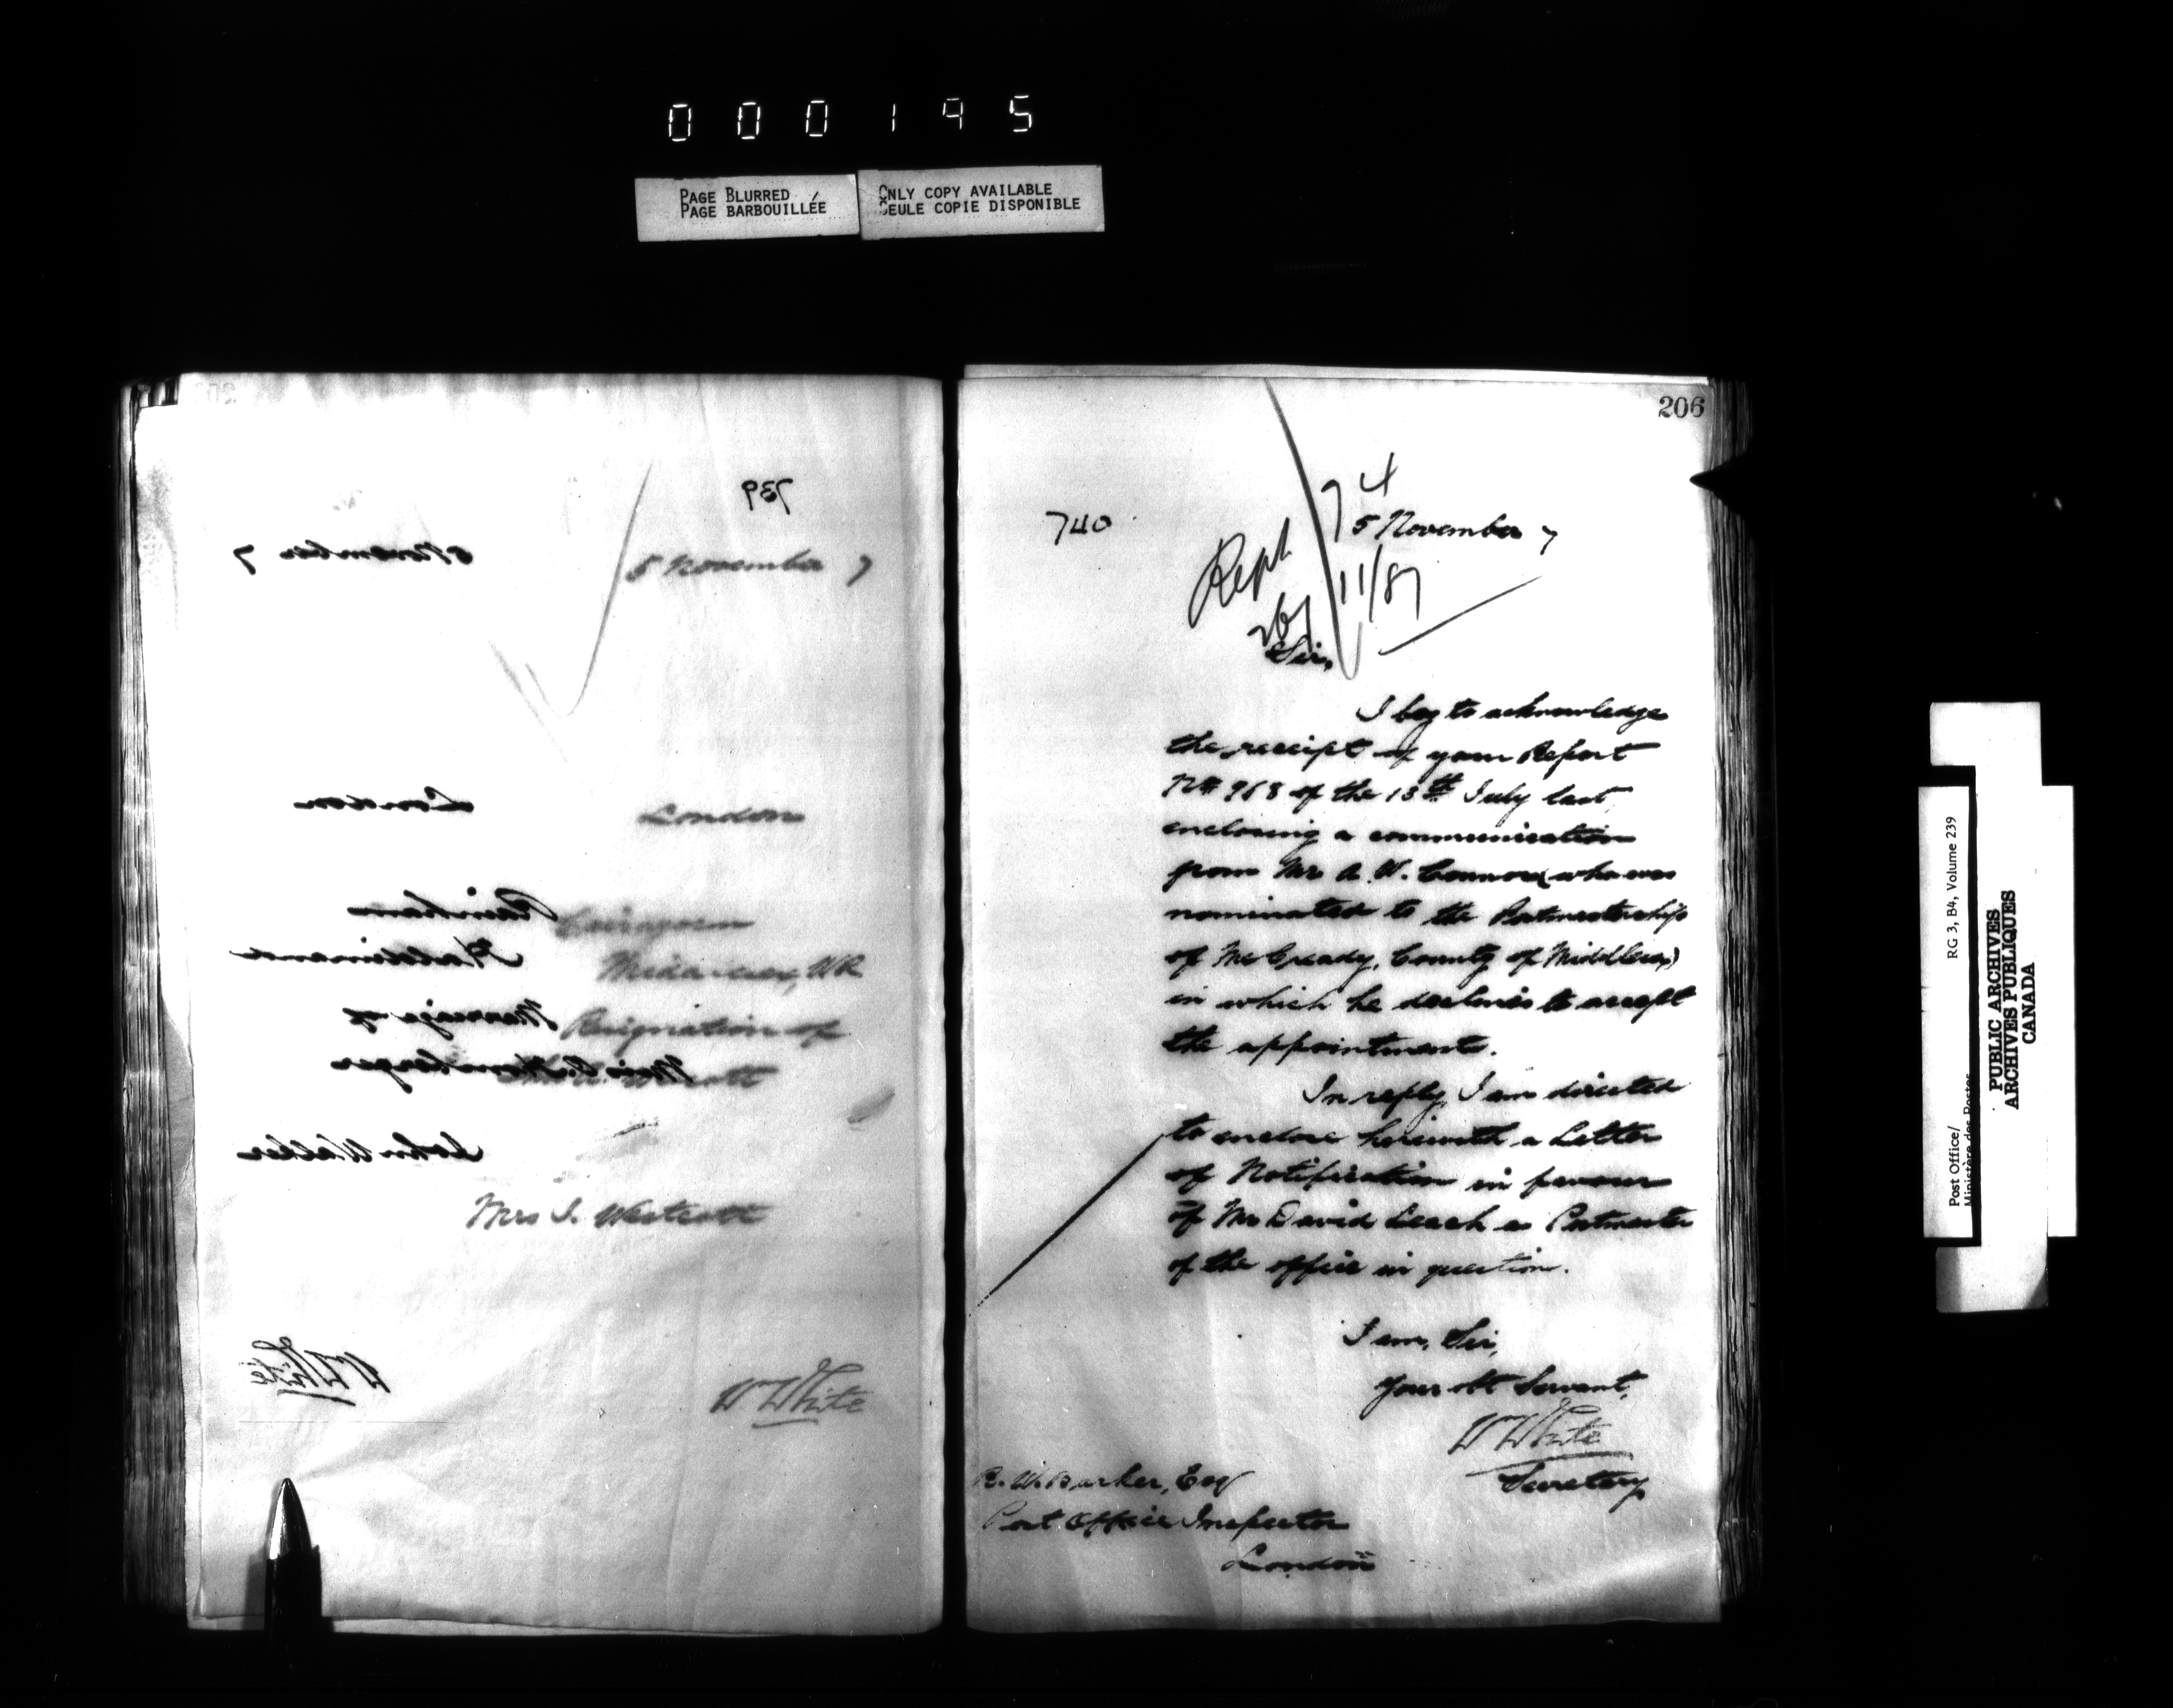 000195
PAGE BLURRED
PAGE BARBOUILLÉE
ONLY COPY AVAILABLE
SEULE COPIE DISPONIBLE
739
5 November 7
5 November 7
London
London
Rainham
Cairngorm
Haldimand
Middlesex, WR
Marriage of
Resignation of
Miss
John Walker
Mrs J. Westcott
W White
W White
206
740
74
5 November 7
Reph
11/87
Sir,
I beg to acknowledge
the receipt of your Report
No 968 of the 13th July last,
enclosing a communication
from Mr A. W. Connor, who was
nominated to the Postmastership
of McCready, County of Middlesex,
in which he declines to accept
the appointment.
In reply, I am directed
to enclose herewith a Letter
of Notification in favour
of Mr David Leach as Postmaster
of the office in question.
I am, Sir,
Your obt Servant,
W White
Secretary
R. W. Barker, Esq
Post Office Inspector
London
Post Office/
Ministère des Postes
RG 3, B4, Volume 239
PUBLIC ARCHIVES
ARCHIVES PUBLIQUES
CANADA